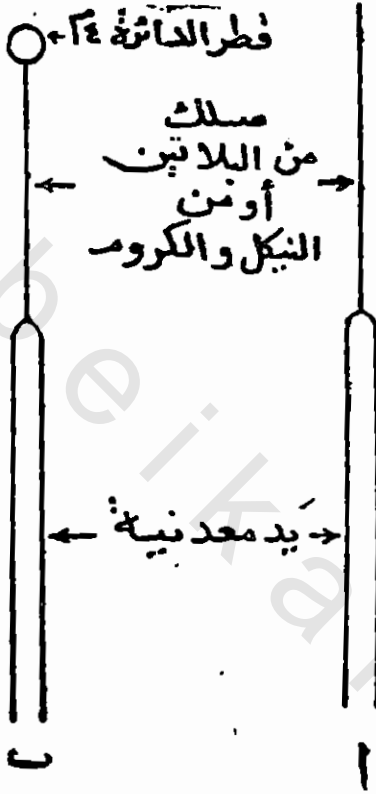 قطر الدائرة ٤م
سلك
من البلاتين
أو من
النيكل والكروم
يد معدنية
ا
ب
beikan